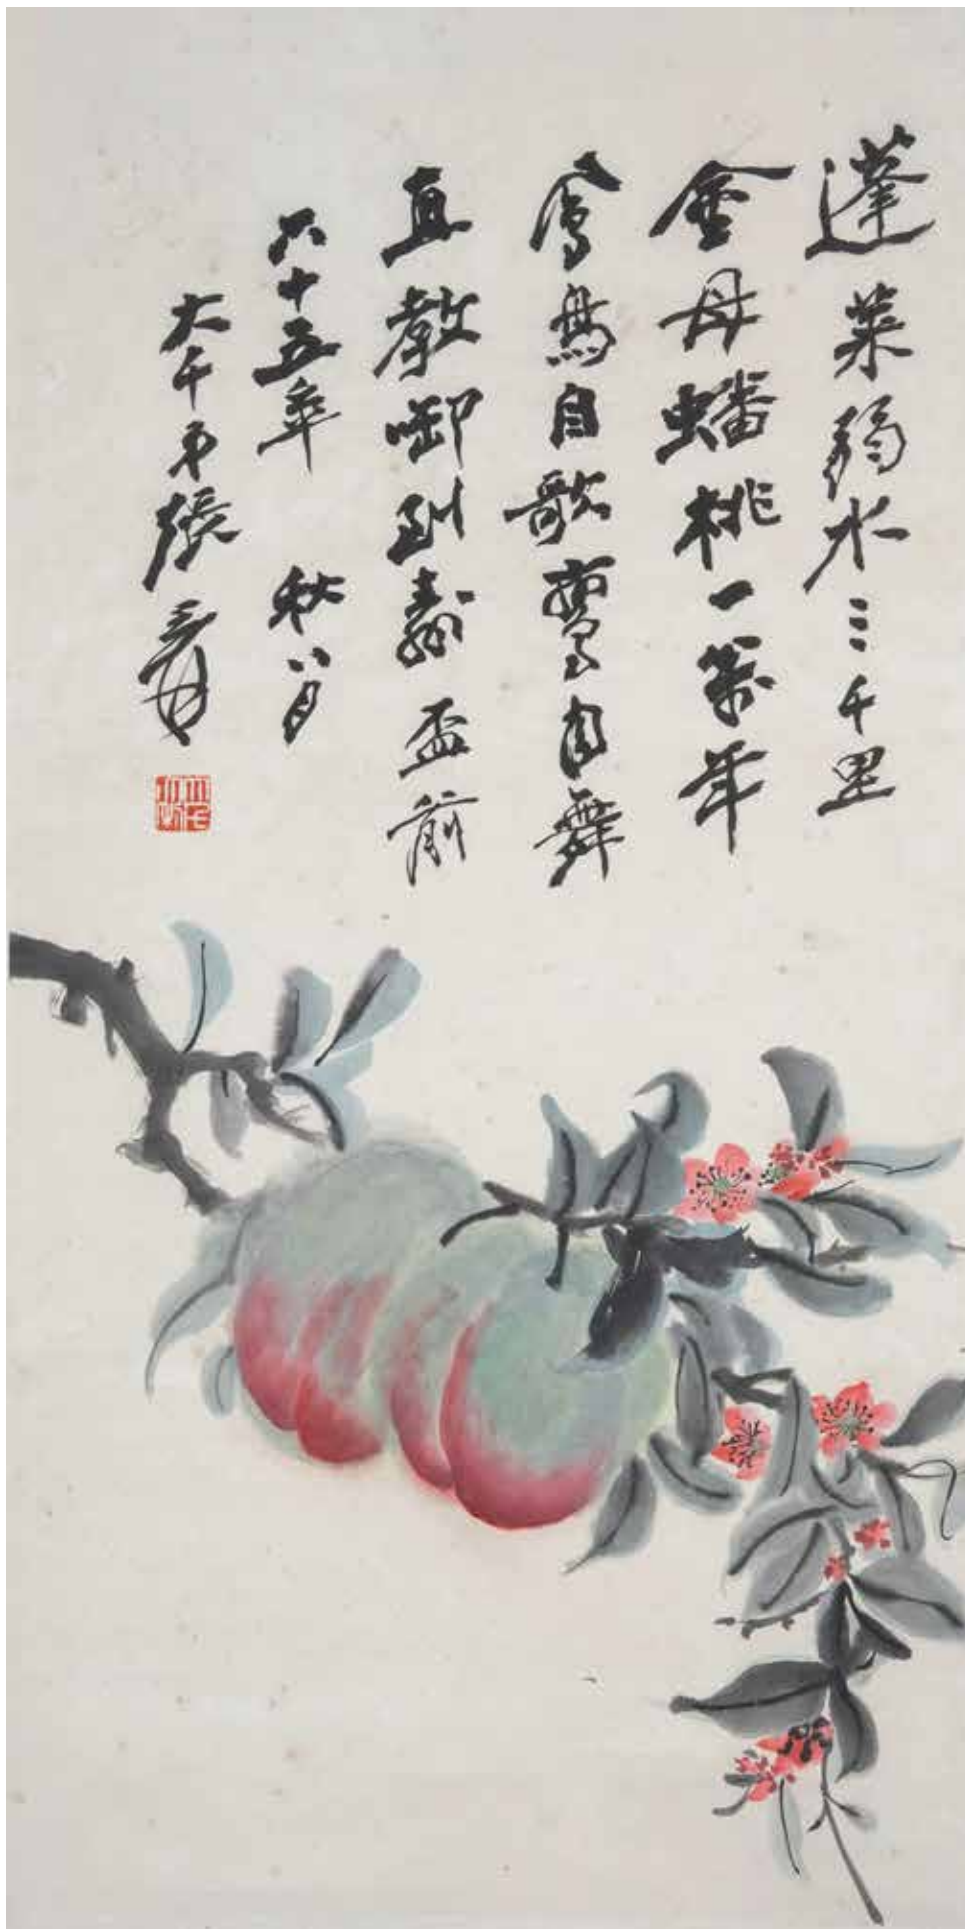 蓬萊弱水三千里
金母蟠桃一萬年
鳳鳥自歌鸞自舞
直教啣到壽盃前
六十五年 秋八月
大千弟張爰